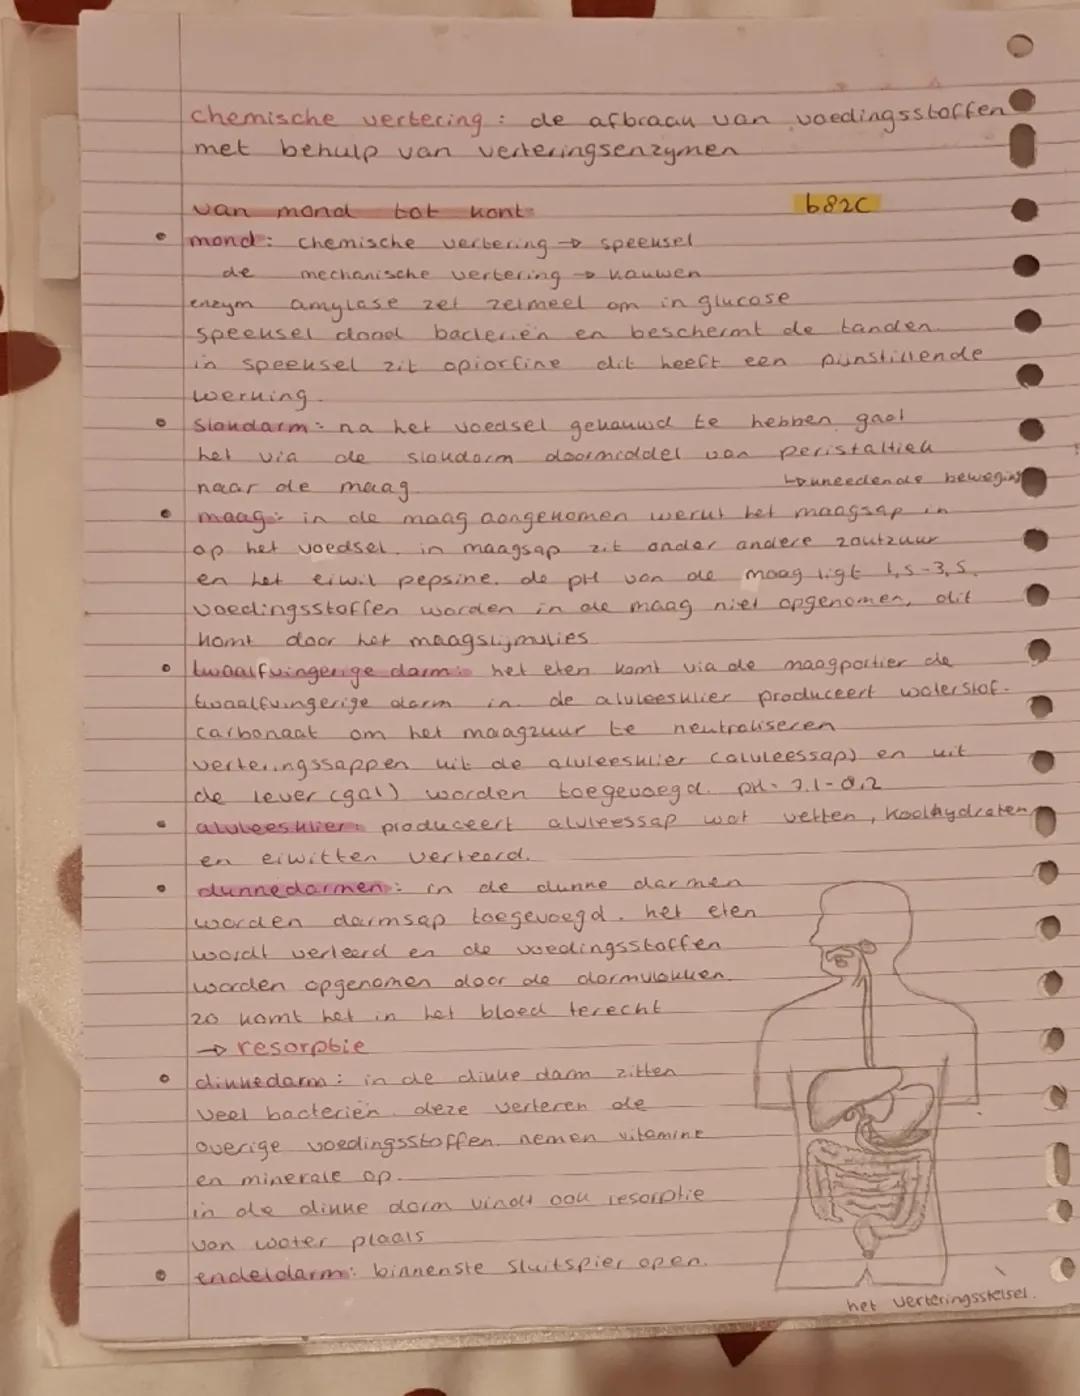 chemische vertering : de afbraak van voedingsstoffen
met behulp van verteringsenzymen
van mond tot kont b82C
• mond : chemische vertering → speeksel
de mechanische vertering → kauwen
enzym amylase zet zetmeel om in glucose
speeksel dood bacteriën en beschermt de tanden.
in speeksel zit opiorfine dit heeft een pijnstillende
werking.
• slokdarm : na het voedsel gekauwd te hebben gaat
het via de slokdarm doormiddel van peristaltiek
naar de maag. ↳ kneedende beweging
• maag : in de maag aangekomen werkt het maagsap in
op het voedsel. in maagsap zit onder andere zoutzuur
en het eiwit pepsine. de pH van de maag ligt 1,5-3,5.
voedingsstoffen worden in de maag niet opgenomen, dit
komt door het maagslijmvlies
• twaalfvingerige darm : het eten komt via de maagportier de
twaalfvingerige darm in. de alvleesklier produceert waterstof-
carbonaat om het maagzuur te neutraliseren
verteringssappen uit de alvleesklier (alvleessap) en uit
de lever (gal) worden toegevoegd. pH = 7.1-8,2
• alvleesklier : produceert alvleessap wat vetten, koolhydraten
en eiwitten verteerd.
• dunnedarmen : in de dunne darmen
worden darmsap toegevoegd. het eten
wordt verteerd en de voedingsstoffen
worden opgenomen door de darmvlokken.
zo komt het in het bloed terecht
→ resorptie
• dikkedarm : in de dikke darm zitten
veel bacteriën. deze verteren de
overige voedingsstoffen. nemen vitamine
en minerale op.
in de dikke darm vindt ook resorptie
van water plaats
• endeldarm : binnenste sluitspier open.
het verteringsstelsel.